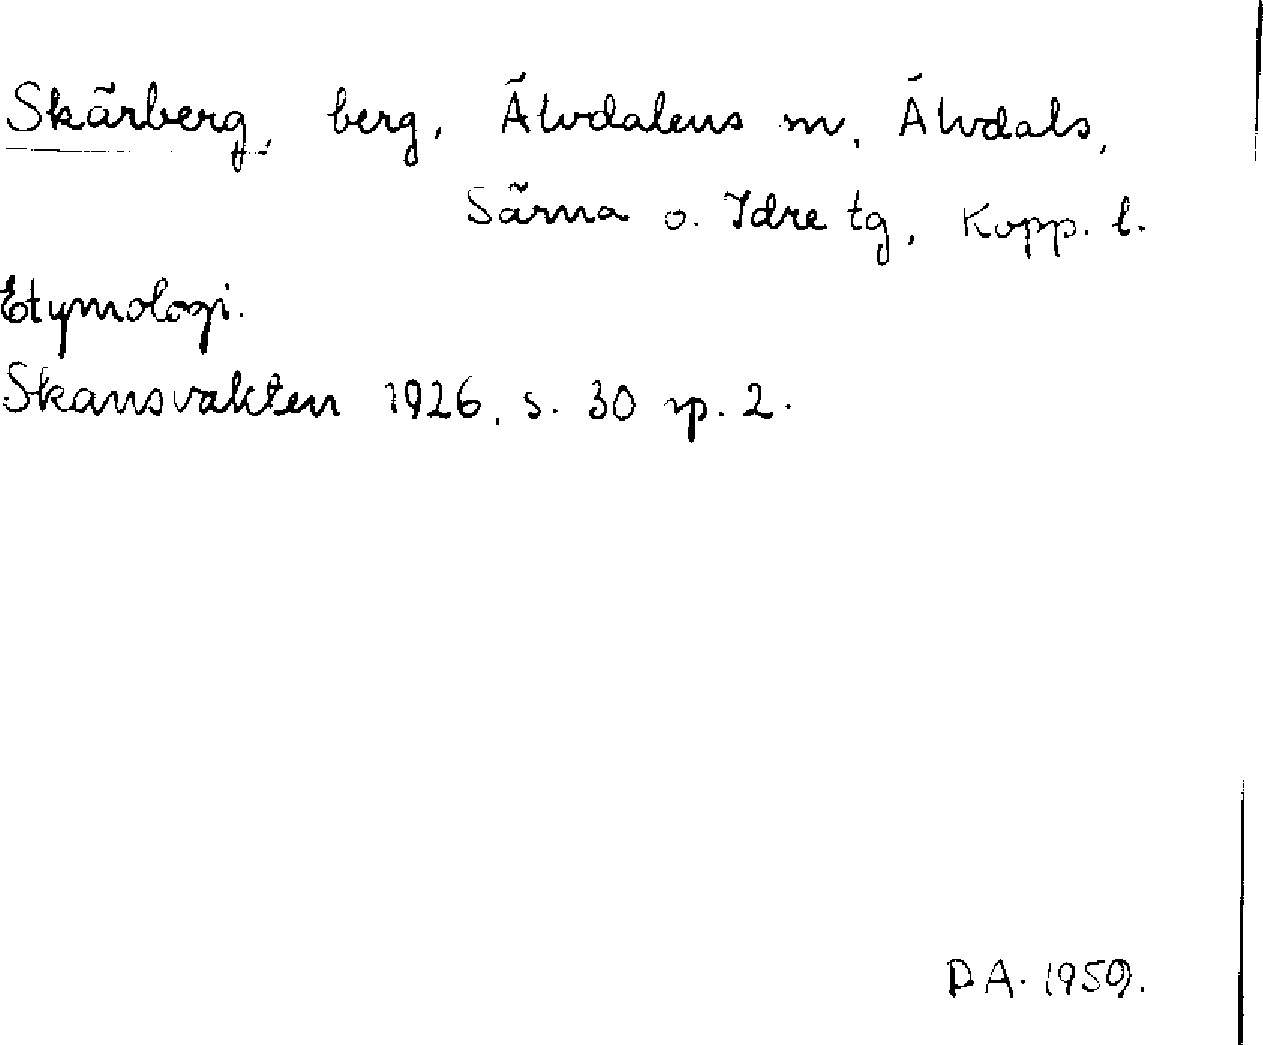 Skärberg, berg, Älvdalens m, Älvdals,
Särna o. Idre tg, Kopp. l.
Etymologi.
Skansvakten 1926, s. 30 sp. 2.
D A. 1959.